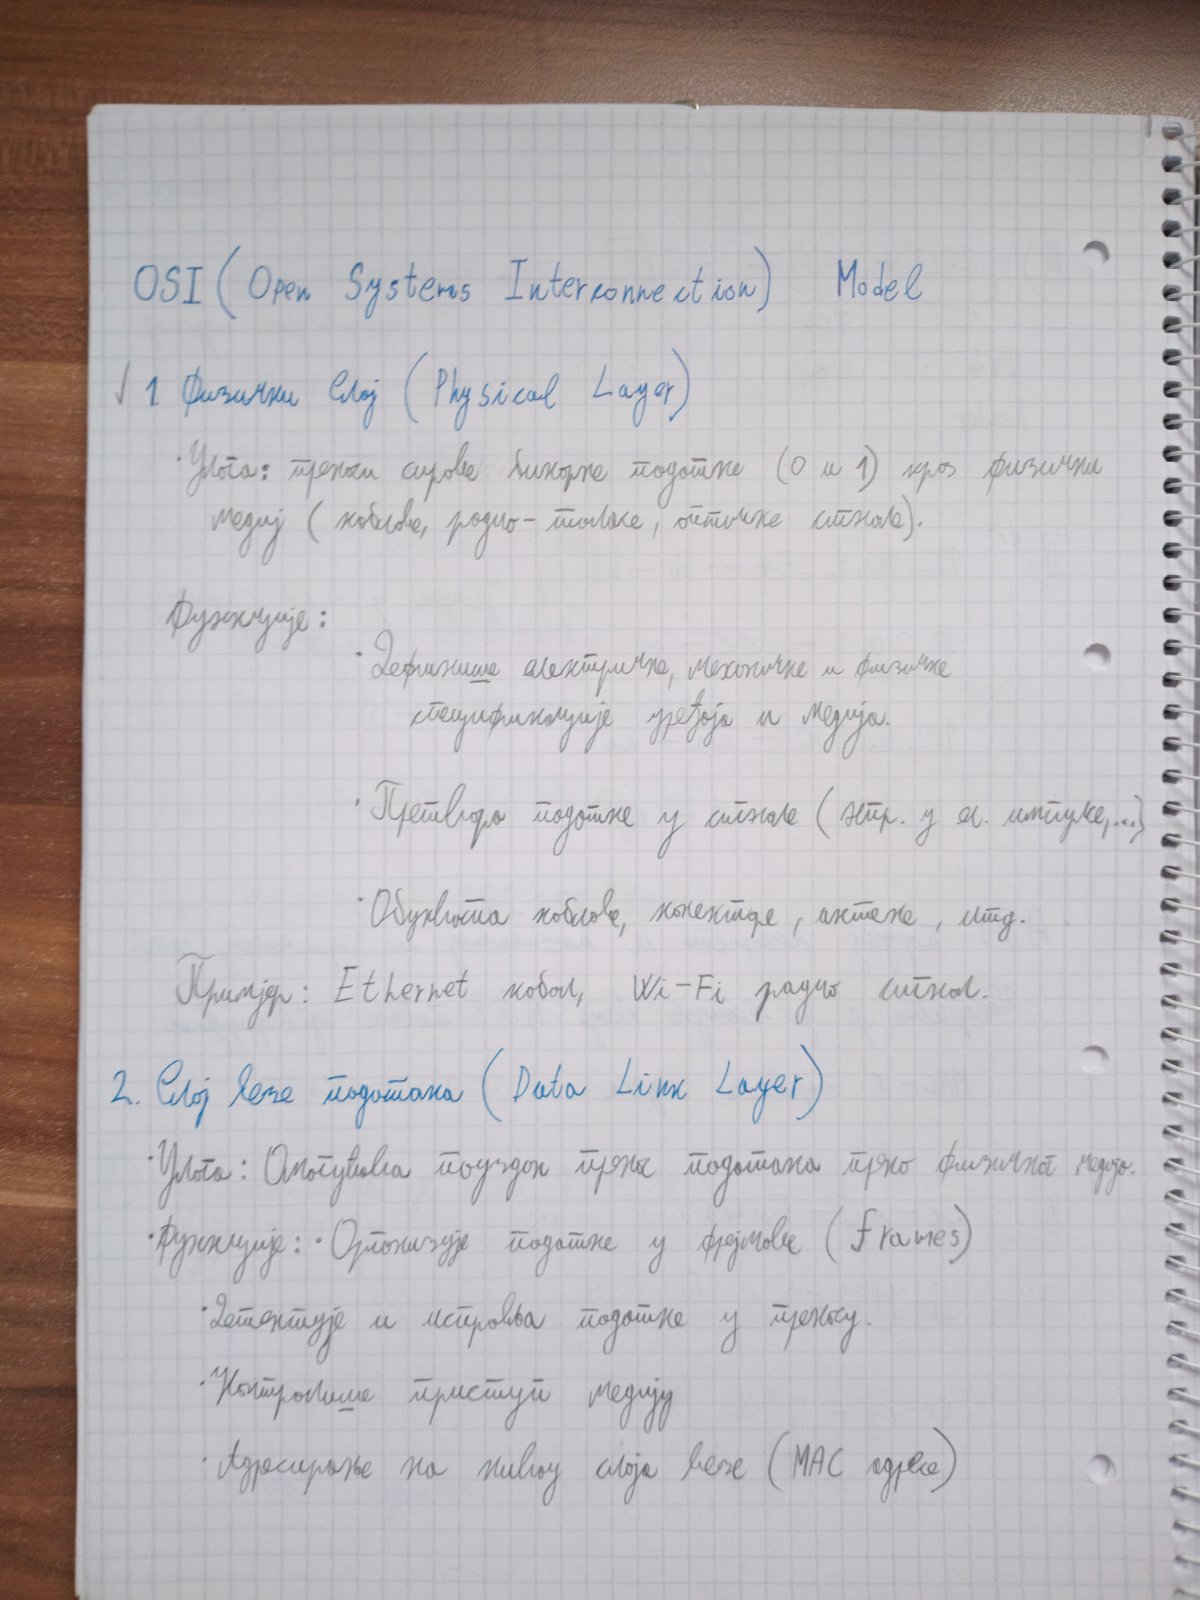 OSI (Open Systems Interconnection) Model
✓ 1 Физички Слој (Physical Layer)
· Улога: преноси сирове бинарне податке (0 и 1) кроз физички
медиј (каблове, радио-таласе, оптичке сигнале).
Функције:
· Дефинише електричне, механичке и физичке
спецификације уређаја и медија.
· Претвара податке у сигнале (нпр. у ел. импулсе,...)
· Обухвата каблове, конекторе, антене, итд.
Пример: Ethernet кабал, Wi-Fi радио сигнал.
2. Слој везе података (Data Link Layer)
· Улога: Омогућава поуздан пренос података преко физичког медија.
· Функције: · Организује податке у фрејмове (Frames)
· Детектује и исправља податке у преносу.
· Контролише приступ медију
· Адресирање на нивоу слоја везе (MAC адресе)